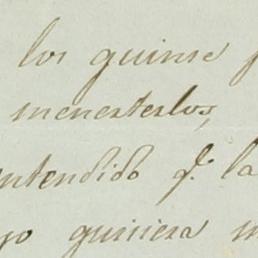 los quinse
menesterlos,
ntendido q.e la
yo quisiera